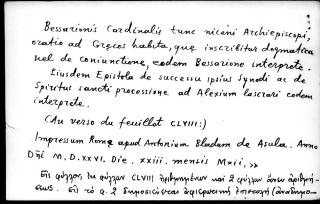 Bessarionis Cardinalis tunc niceni Archiepiscopi,
oratio ad Grecos habita, que inscribitur dogmatica
vel de coniunctione, eodem Bessarione interprete.
Eiusdem Epistola de successu ipsius Synodi ac de
Spiritus sancti processione ad Alexium lascrari eodem
interprete.
(Au verso du feuillot CLVIII:)
Impressum Rome apud Antonium Bladum de Asula. Anno
Dñi M.D.XXVI. Die. xxiii. mensis Maii.»
Εἰς φύλλον CLVIII ἀριθμημένων καὶ 2 φύλλων ἄνευ ἀριθμή-
σεως. Εἰς τὸ φ. 2 δημοσιεύεται ἀφιερωτικὴ ἐπιστολὴ